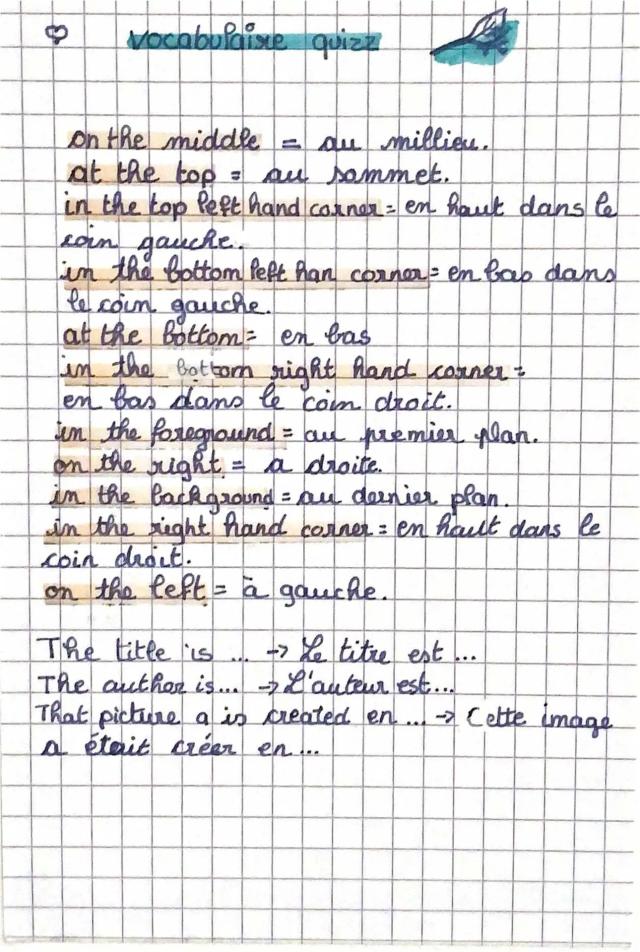 vocabulaire quizz
on the middle = au millieu.
at the top = au sommet.
in the top left hand corner = en haut dans le
coin gauche.
in the bottom left han corner = en bas dans
le coin gauche.
at the bottom = en bas
in the bottom right hand corner =
en bas dans le coin droit.
in the foreground = au premier plan.
on the right = a droite.
in the background = au dernier plan.
in the right hand corner = en hault dans le
coin droit.
on the left = à gauche.
The title is ... → Le titre est ...
The author is... → L'auteur est...
That picture a is created en ... → Cette image
a était créer en ...